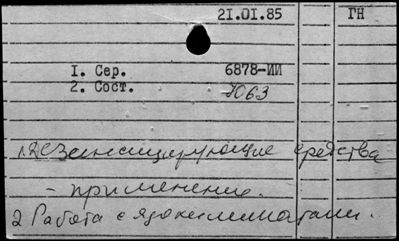 21.01.85 ГН
I. Сер. 6878-ИИ
2. Сост. 7063
1. Дезинсицирующие средства
- применение.
2 Работа с ядохимикатами.